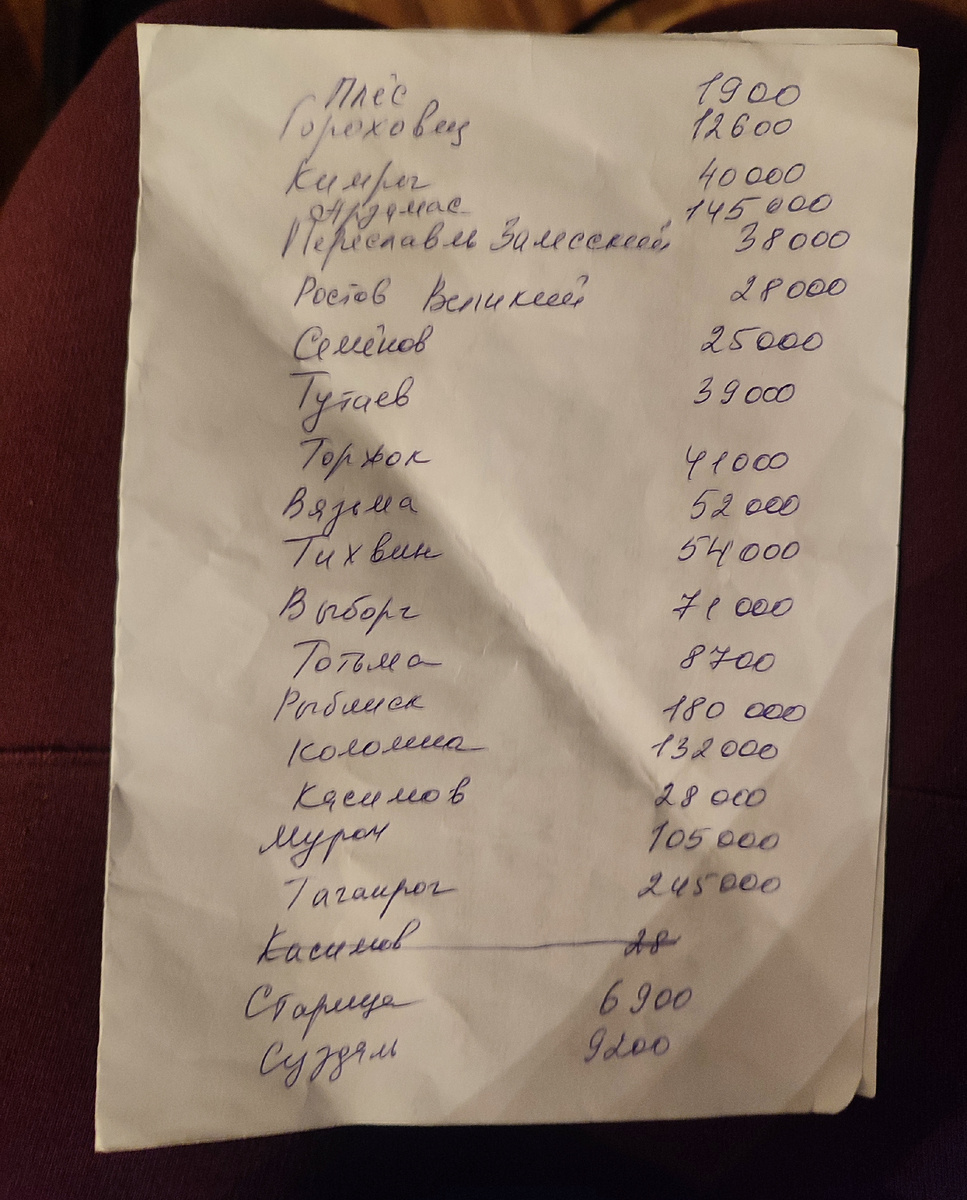 Плёс 1900
Гороховец 12600
Кимры 40000
Арзамас 145000
Переславль Залесский 38000
Ростов Великий 28000
Семёнов 25000
Тутаев 39000
Торжок 41000
Вязьма 52000
Тихвин 54000
Выборг 71000
Тотьма 8700
Рыбинск 180 000
Коломна 132000
Касимов 28000
Муром 105000
Таганрог 245000
Касимов 28
Старица 6900
Суздаль 9200